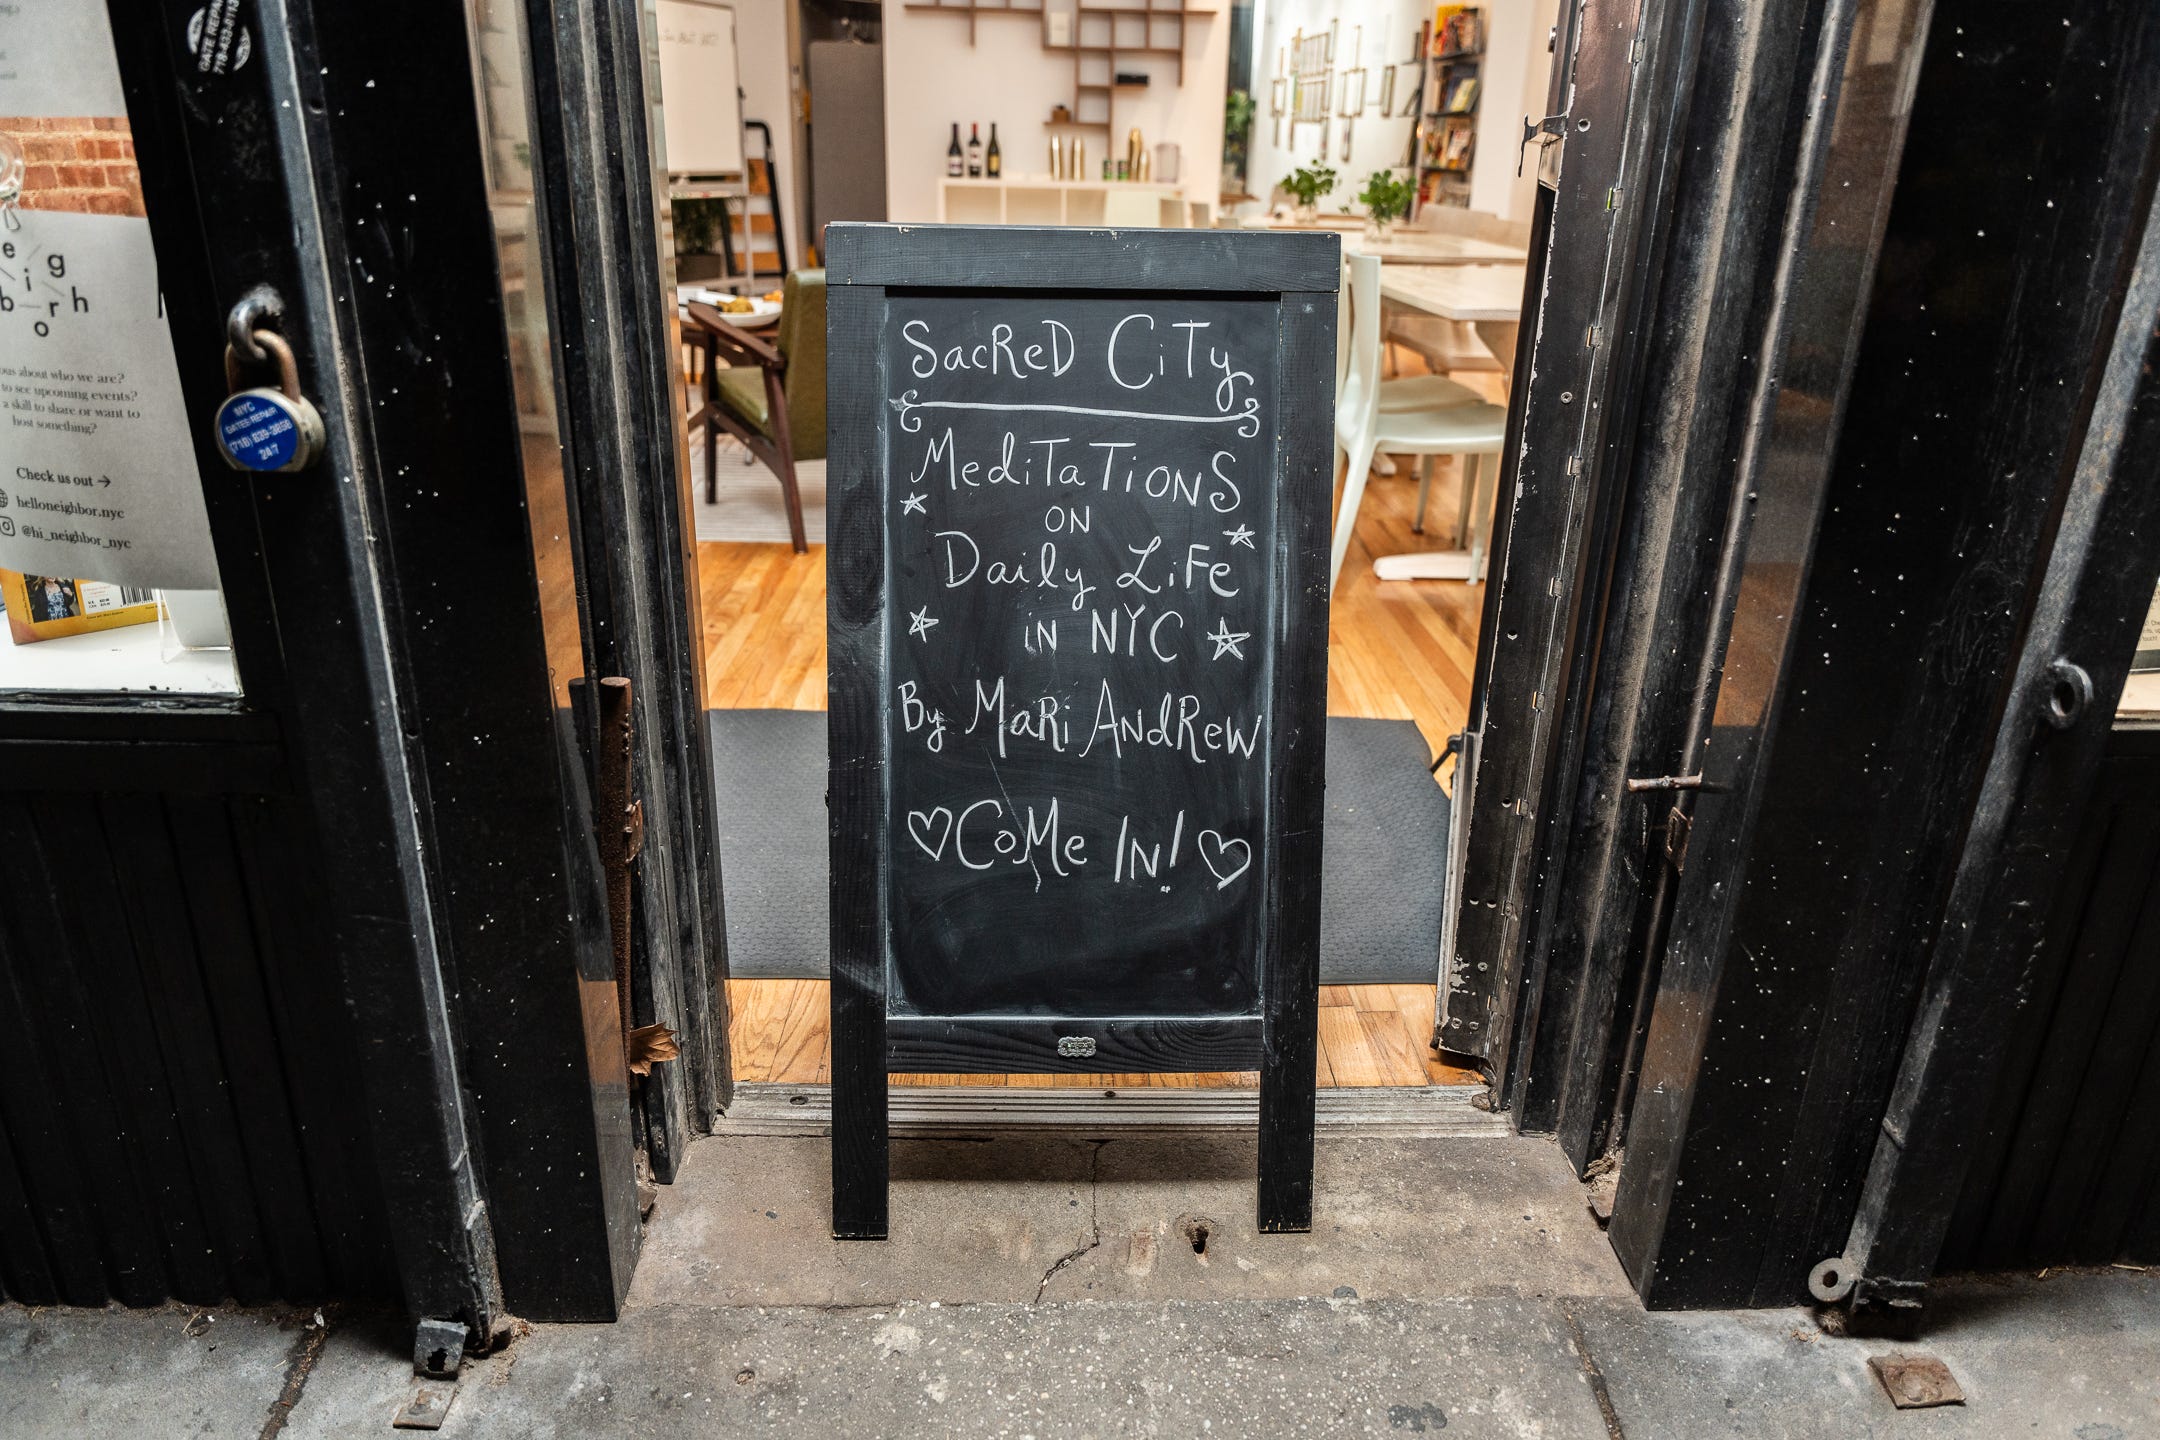 SacReD CiTy
MediTaTiONS
ON
Daily LiFe
iN NYC
By MaRi ANdRew
CoMe IN!
GATE REPAIR
e i g
b o r h
ous about who we are?
to see upcoming events?
a skill to share or want to
host something?
Check us out →
helloneighbor.nyc
@hi_neighbor_nyc
NYC
GATES REPAIR
(718) 639-3856
24/7